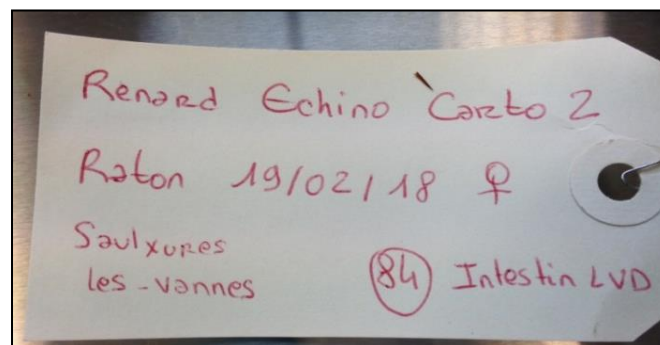 Renard Echino Carto 2
Raton 19/02/18 ♀
Saulxures
les-vannes
84 Intestin LVD